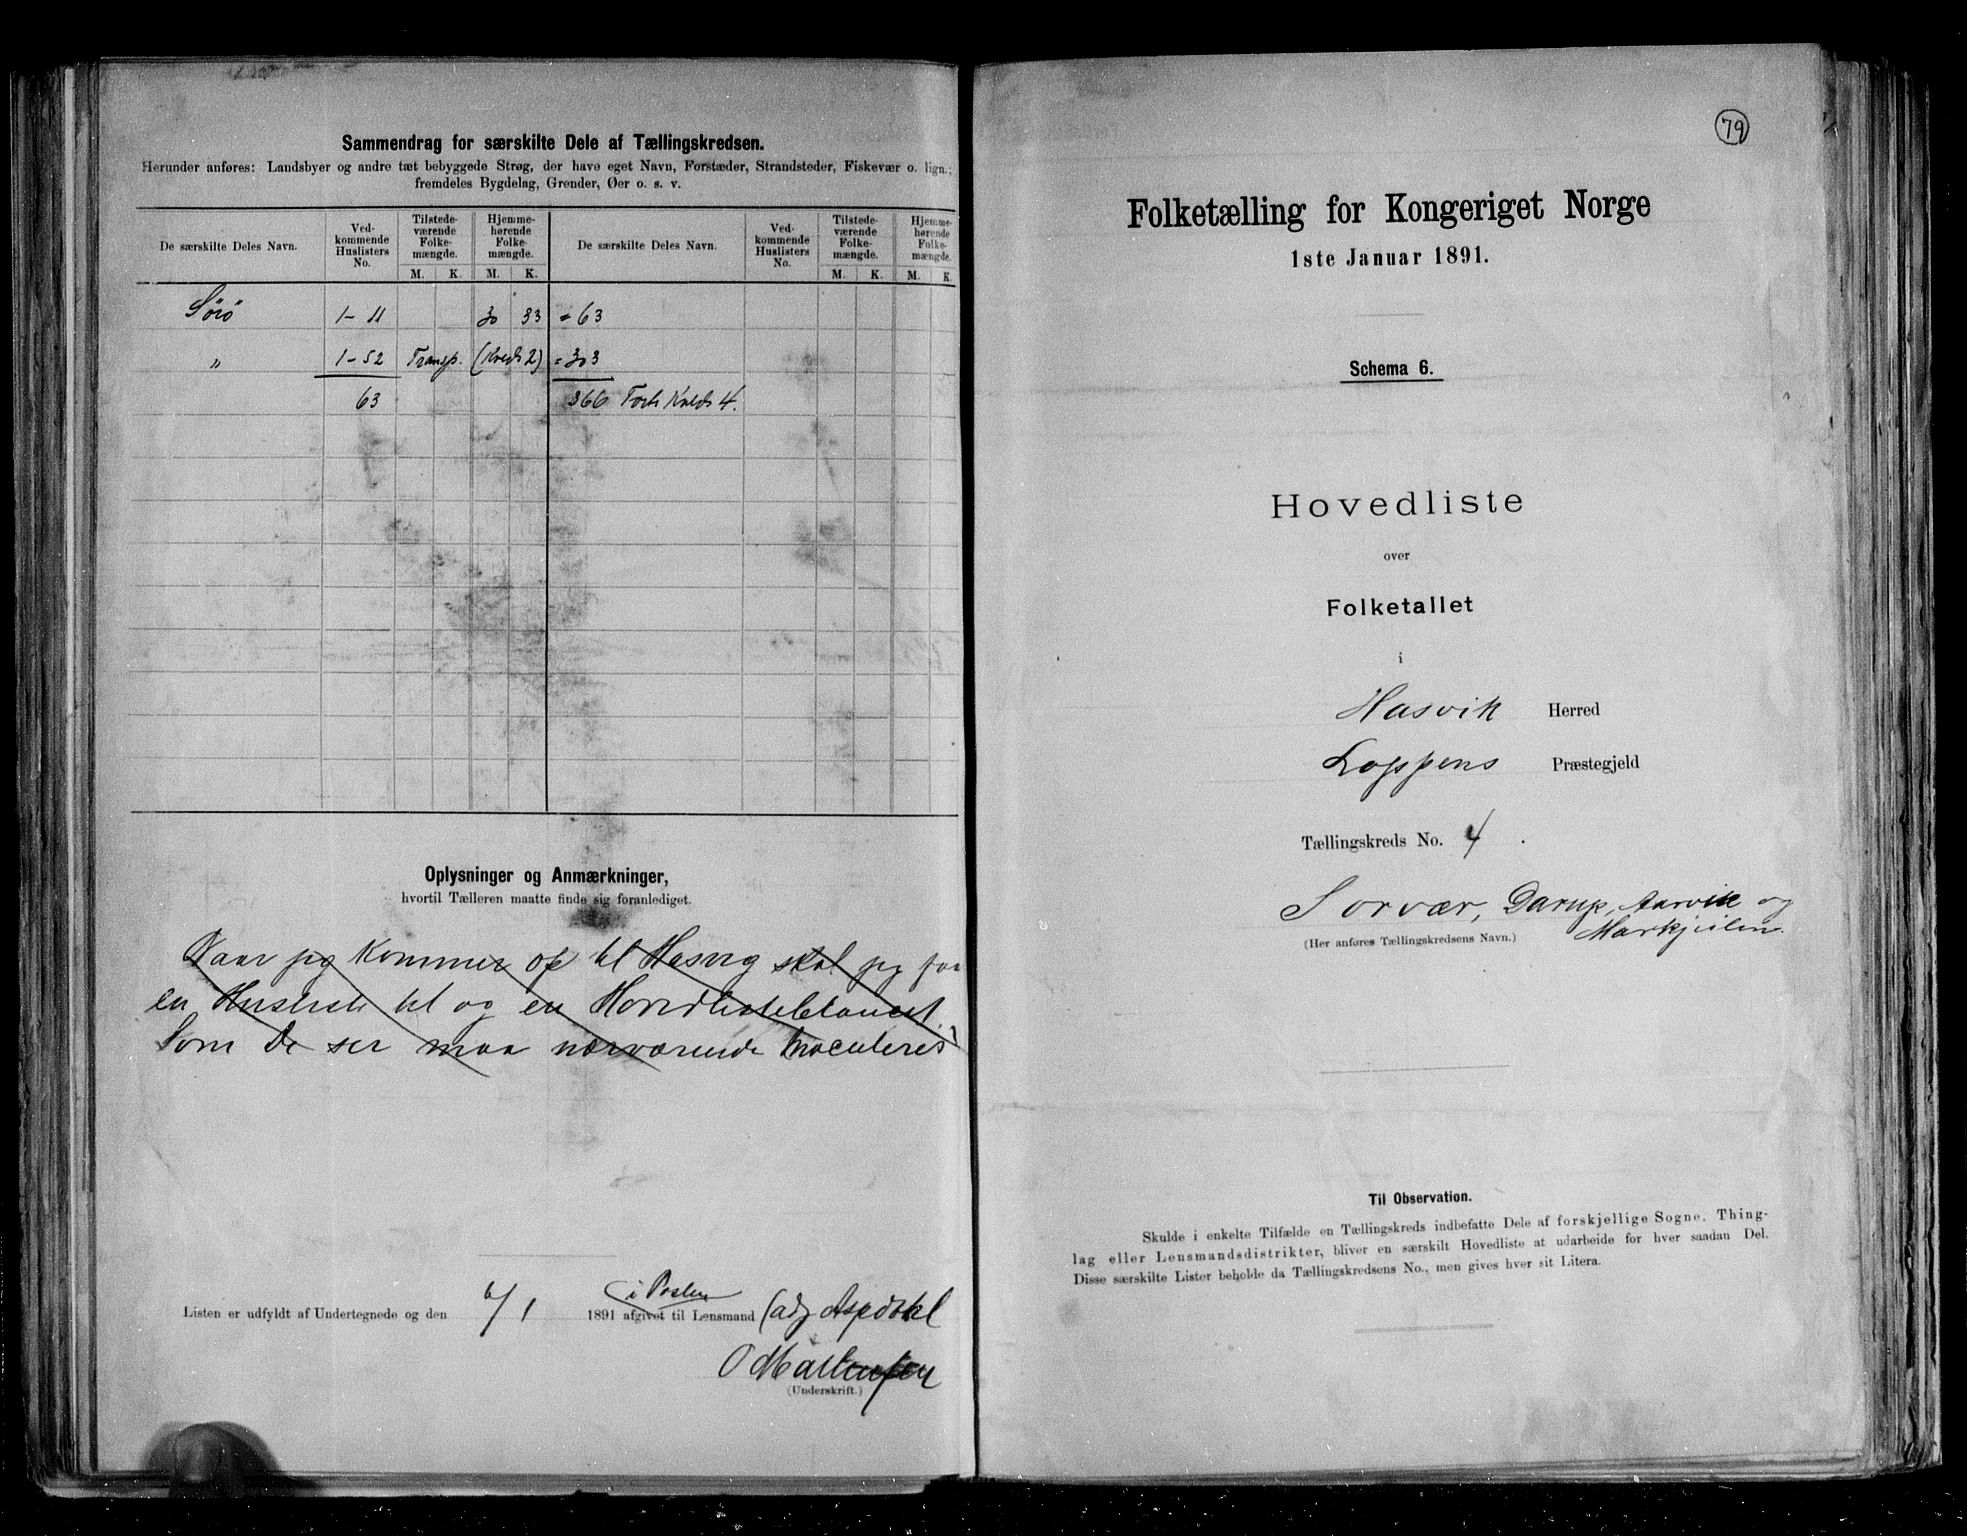 Sammendrag for særskilte Dele af Tællingskredsen.
Herunder anføres: Landsbyer og andre tæt bebyggede Strøg, der have eget Navn, Forstæder, Strandsteder, Fiskevær o. lign.;
fremdeles Bygdelag, Grender, Øer o. s. v.
De særskilte Deles Navn. Ved-kommende Huslisters No. Tilstede-værende Folke-mængde. Hjemme-hørende Folke-mængde. De særskilte Deles Navn. Ved-kommende Huslisters No. Tilstede-værende Folke-mængde. Hjemme-hørende Folke-mængde.
M. K. M. K. M. K. M. K.
Sörö 1-11 30 33 = 63
" 1-52 Transp. (Kreds 2) = 303
63 366 Forts Kreds 4.
Oplysninger og Anmærkninger,
hvortil Tælleren maatte finde sig foranlediget.
Naar jeg kommer op til Hasvig skal jeg faa
en Husliste til og en Hovedlisteblanket.
Som De ser maa nærværende
Listen er udfyldt af Undertegnede og den 6/1 1891 afgivet til Lensmand
i Posten
(adj Aspdahl
O Mortensen
(Underskrift.)
79
Folketælling for Kongeriget Norge
1ste Januar 1891.
Schema 6.
Hovedliste
over
Folketallet
i
Hasvik Herred
Loppens Præstegjeld
Tællingskreds No. 4.
Sorvær, Darup, Aarvik og
Markjeilen
(Her anføres Tællingskredsens Navn.)
Til Observation.
Skulde i enkelte Tilfælde en Tællingskreds indbefatte Dele af forskjellige Sogne, Thing-
lag eller Lensmandsdistrikter, bliver en særskilt Hovedliste at udarbeide for hver saadan Del.
Disse særskilte Lister beholde da Tællingskredsens No., men gives hver sit Litera.